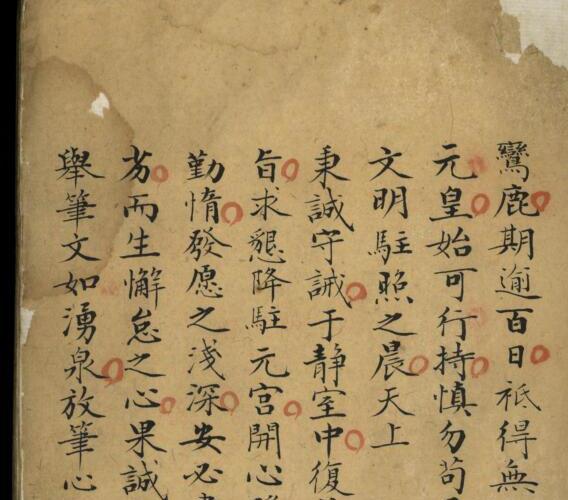 鸞鹿期逾百日祗得無
元皇始可行持慎勿苟
文明駐照之晨天上
秉誠守誡于靜室中復
旨求懇降駐元宮開心
勤惰發愿之淺深安必
芴而生懈怠之心果誠
舉筆文如湧泉放筆心